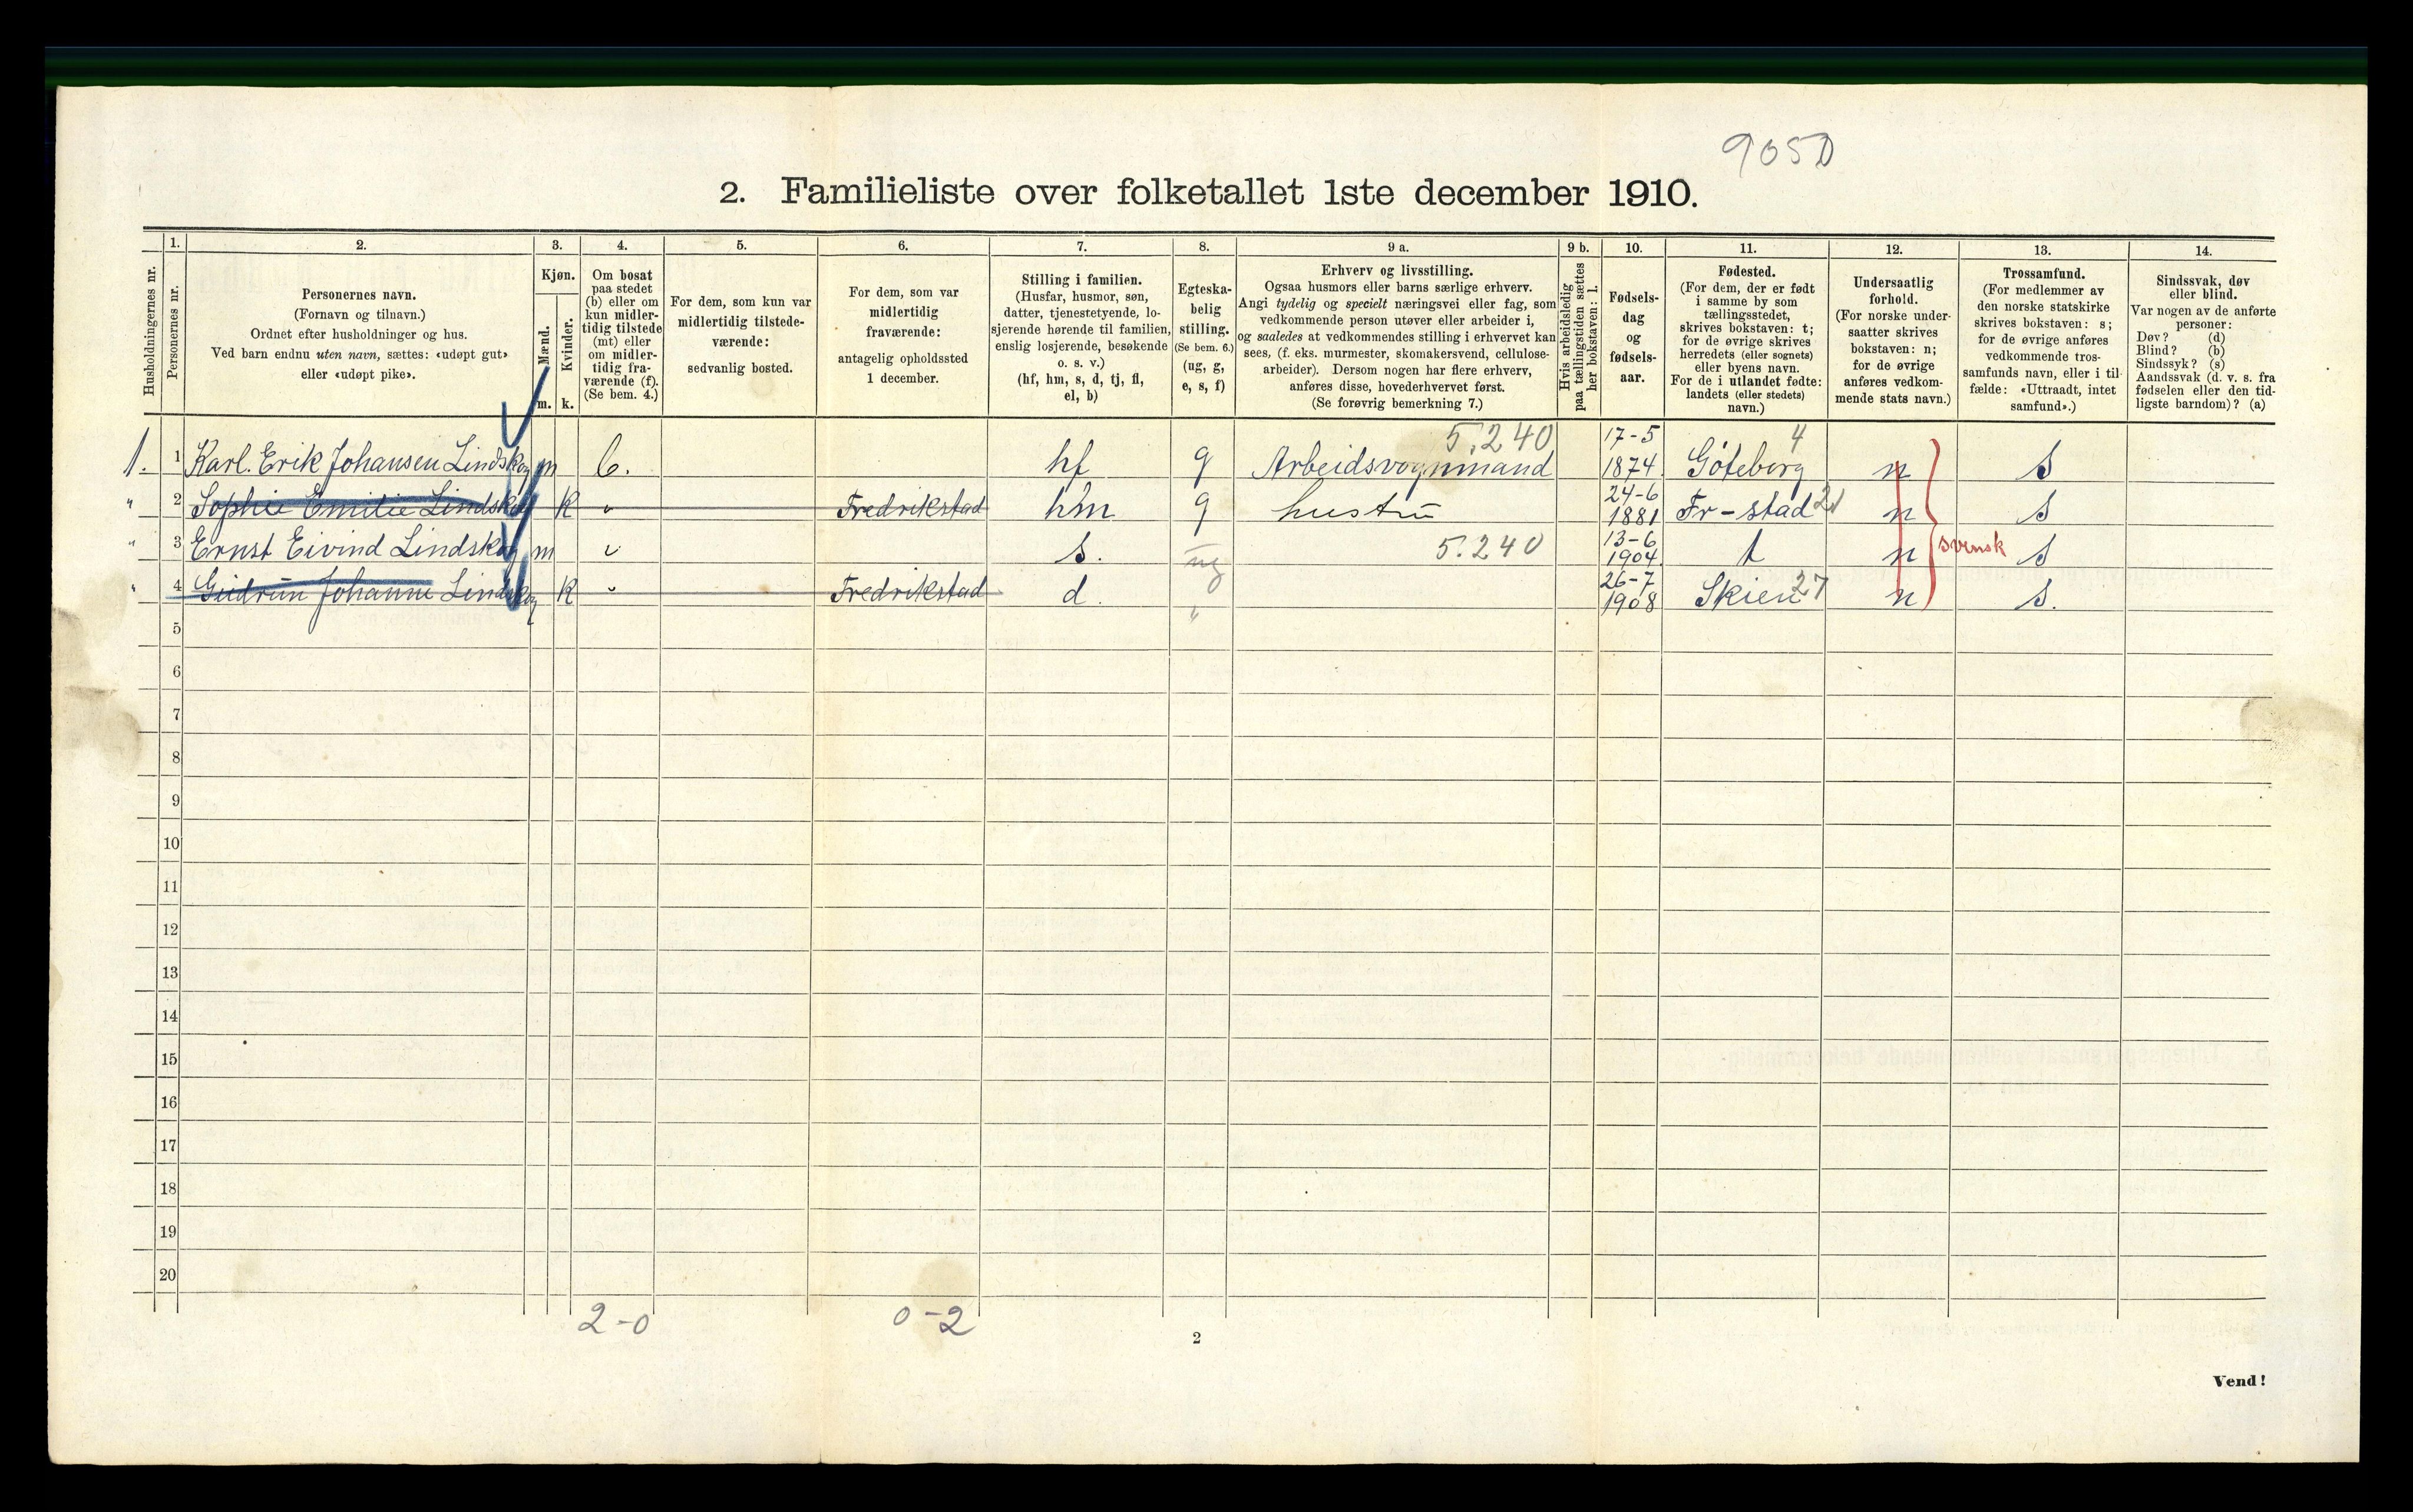 9050
2. Familieliste over folketallet 1ste december 1910.
Husholdningernes nr.
1.
Personernes nr.
2.
Personernes navn.
(Fornavn og tilnavn.)
Ordnet efter husholdninger og hus.
Ved barn endnu uten navn, sættes: «udøpt gut»
eller «udøpt pike».
3.
Kjøn.
Mænd.
Kvinder.
m.
k.
4.
Om bosat
paa stedet
(b) eller om
kun midler-
tidig tilstede
(mt) eller
om midler-
tidig fra-
værende (f).
(Se bem. 4.)
5.
For dem, som kun var
midlertidig tilstede-
værende:
sedvanlig bosted.
6.
For dem, som var
midlertidig
fraværende:
antagelig opholdssted
1 december.
7.
Stilling i familien.
(Husfar, husmor, søn,
datter, tjenestetyende, lo-
sjerende hørende til familien,
enslig losjerende, besøkende
o. s. v.)
(hf, hm, s, d, tj, fl,
el, b)
8.
Egteska-
belig
stilling.
(Se bem. 6.)
(ug, g,
e, s, f)
9 a.
Erhverv og livsstilling.
Ogsaa husmors eller barns særlige erhverv.
Angi tydelig og specielt næringsvei eller fag, som
vedkommende person utøver eller arbeider i,
og saaledes at vedkommendes stilling i erhvervet kan
sees, (f. eks. murmester, skomakersvend, cellulose-
arbeider). Dersom nogen har flere erhverv,
anføres disse, hovederhvervet først.
(Se forøvrig bemerkning 7.)
9 b.
Hvis arbeidsledig
paa tællingstiden sættes
her bokstaven: l.
10.
Fødsels-
dag
og
fødsels-
aar.
11.
Fødested.
(For dem, der er født
i samme by som
tællingsstedet,
skrives bokstaven: t;
for de øvrige skrives
herredets (eller sognets)
eller byens navn.
For de i utlandet fødte:
landets (eller stedets)
navn.)
12.
Undersaatlig
forhold.
(For norske under-
saatter skrives
bokstaven: n;
for de øvrige
anføres vedkom-
mende stats navn.)
13.
Trossamfund.
(For medlemmer av
den norske statskirke
skrives bokstaven: s;
for de øvrige anføres
vedkommende tros-
samfunds navn, eller i til-
fælde: «Uttraadt, intet
samfund».)
14.
Sindssvak, døv
eller blind.
Var nogen av de anførte
personer:
Døv? (d)
Blind? (b)
Sindssyk? (s)
Aandssvak (d. v. s. fra
fødselen eller den tid-
ligste barndom)? (a)
1. 1 Karl. Erik Johansen Lindskog m b. hf g Arbeidsvognmand 5.240 17-5 1874 Göteborg 4 n s
" 2 Sophie Emilie Lindskog k " Fredrikstad hm g hustru 24-6 1881 Fr-stad 21 n s
" 3 Ernst Eivind Lindskog m " s. ug 5.240 13-6 1904 t n svensk s
" 4 Gudrun Johanne Lindskog k " Fredrikstad d. " 26-7 1908 Skien 27 n s.
5
6
7
8
9
10
11
12
13
14
15
16
17
18
19
20
2-0
0-2
2
Vend!